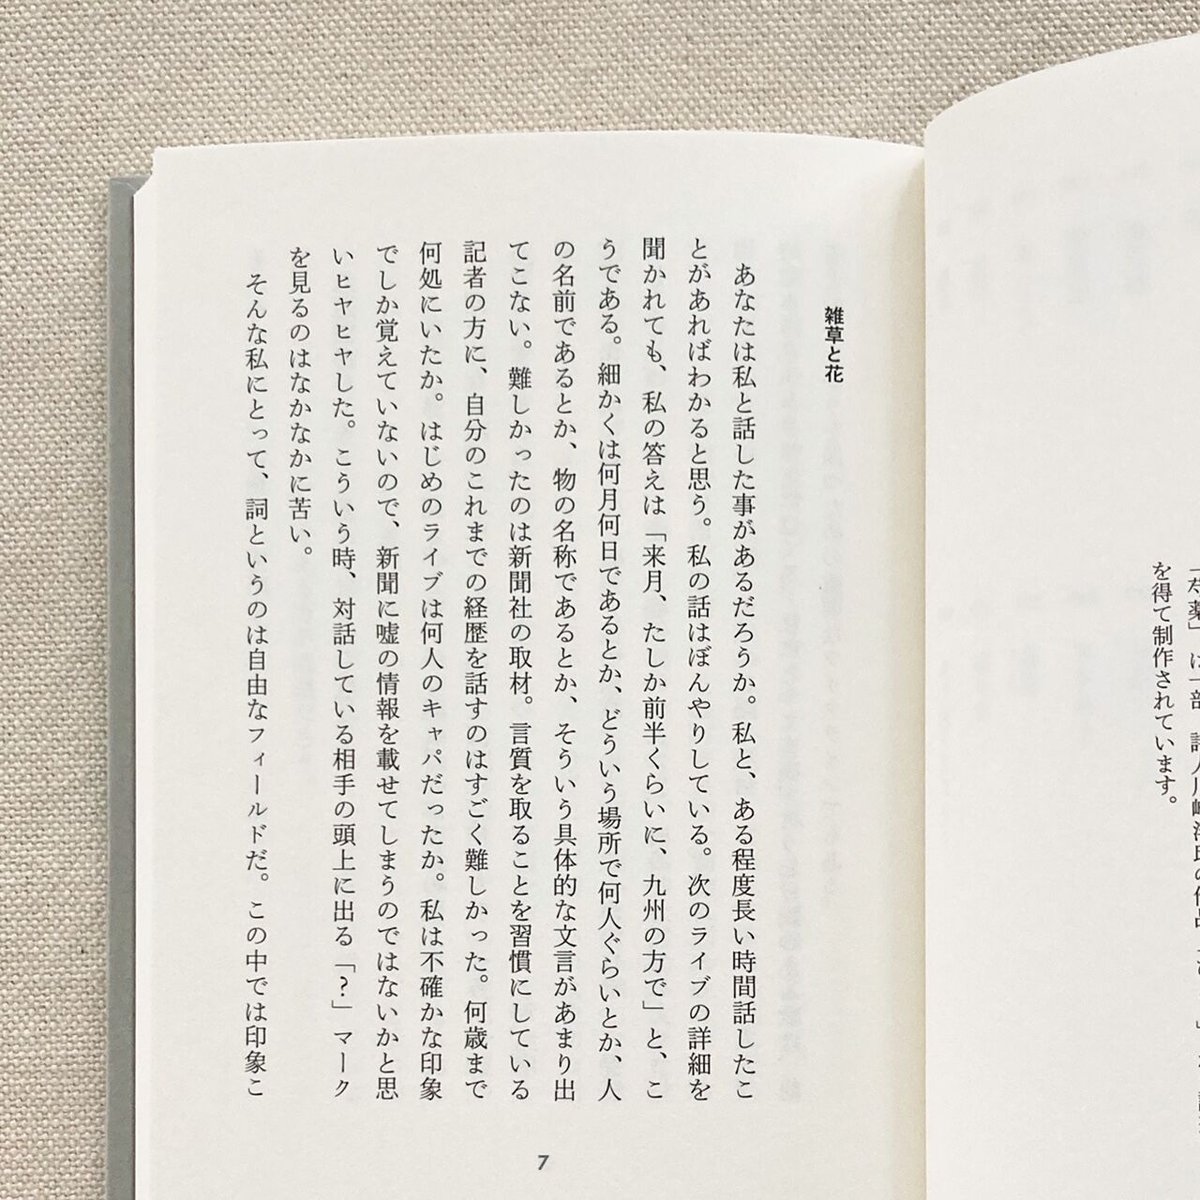 「芍薬」は一部、詩人川崎洋氏の作品
を得て制作されています。
雑草と花
あなたは私と話した事があるだろうか。私と、ある程度長い時間話したこ
とがあればわかると思う。私の話はぼんやりしている。次のライブの詳細を
聞かれても、私の答えは「来月、たしか前半くらいに、九州の方で」と、こ
うである。細かくは何月何日であるとか、どういう場所で何人ぐらいとか、人
の名前であるとか、物の名称であるとか、そういう具体的な文言があまり出
てこない。難しかったのは新聞社の取材。言質を取ることを習慣にしている
記者の方に、自分のこれまでの経歴を話すのはすごく難しかった。何歳まで
何処にいたか。はじめのライブは何人のキャパだったか。私は不確かな印象
でしか覚えていないので、新聞に嘘の情報を載せてしまうのではないかと思
いヒヤヒヤした。こういう時、対話している相手の頭上に出る「？」マーク
を見るのはなかなかに苦い。
そんな私にとって、詞というのは自由なフィールドだ。この中では印象こ
7